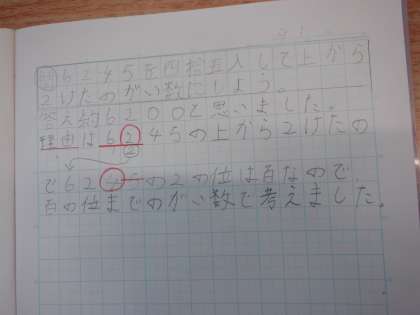 問 6245を四捨五入して上から
2けたのがい数にしよう。
答え約6200と思いました。
理由は6245の上から2けたの
②
で6245の2の位は百なので
百の位までのがい数で考えました。